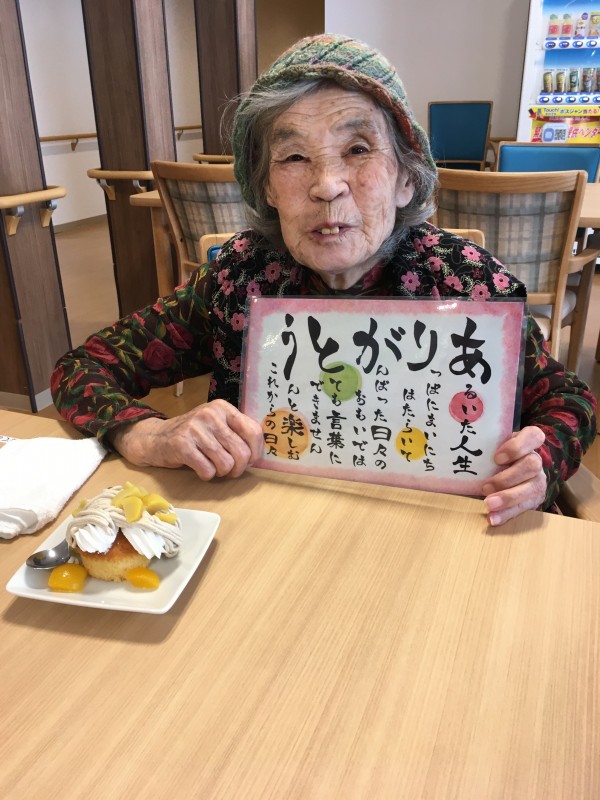 あるいた人生
りっぱにまいにち
はたらいて
がんばった日々の
おもいでは
とても言葉に
できません
うんと楽しむ
これからの日々